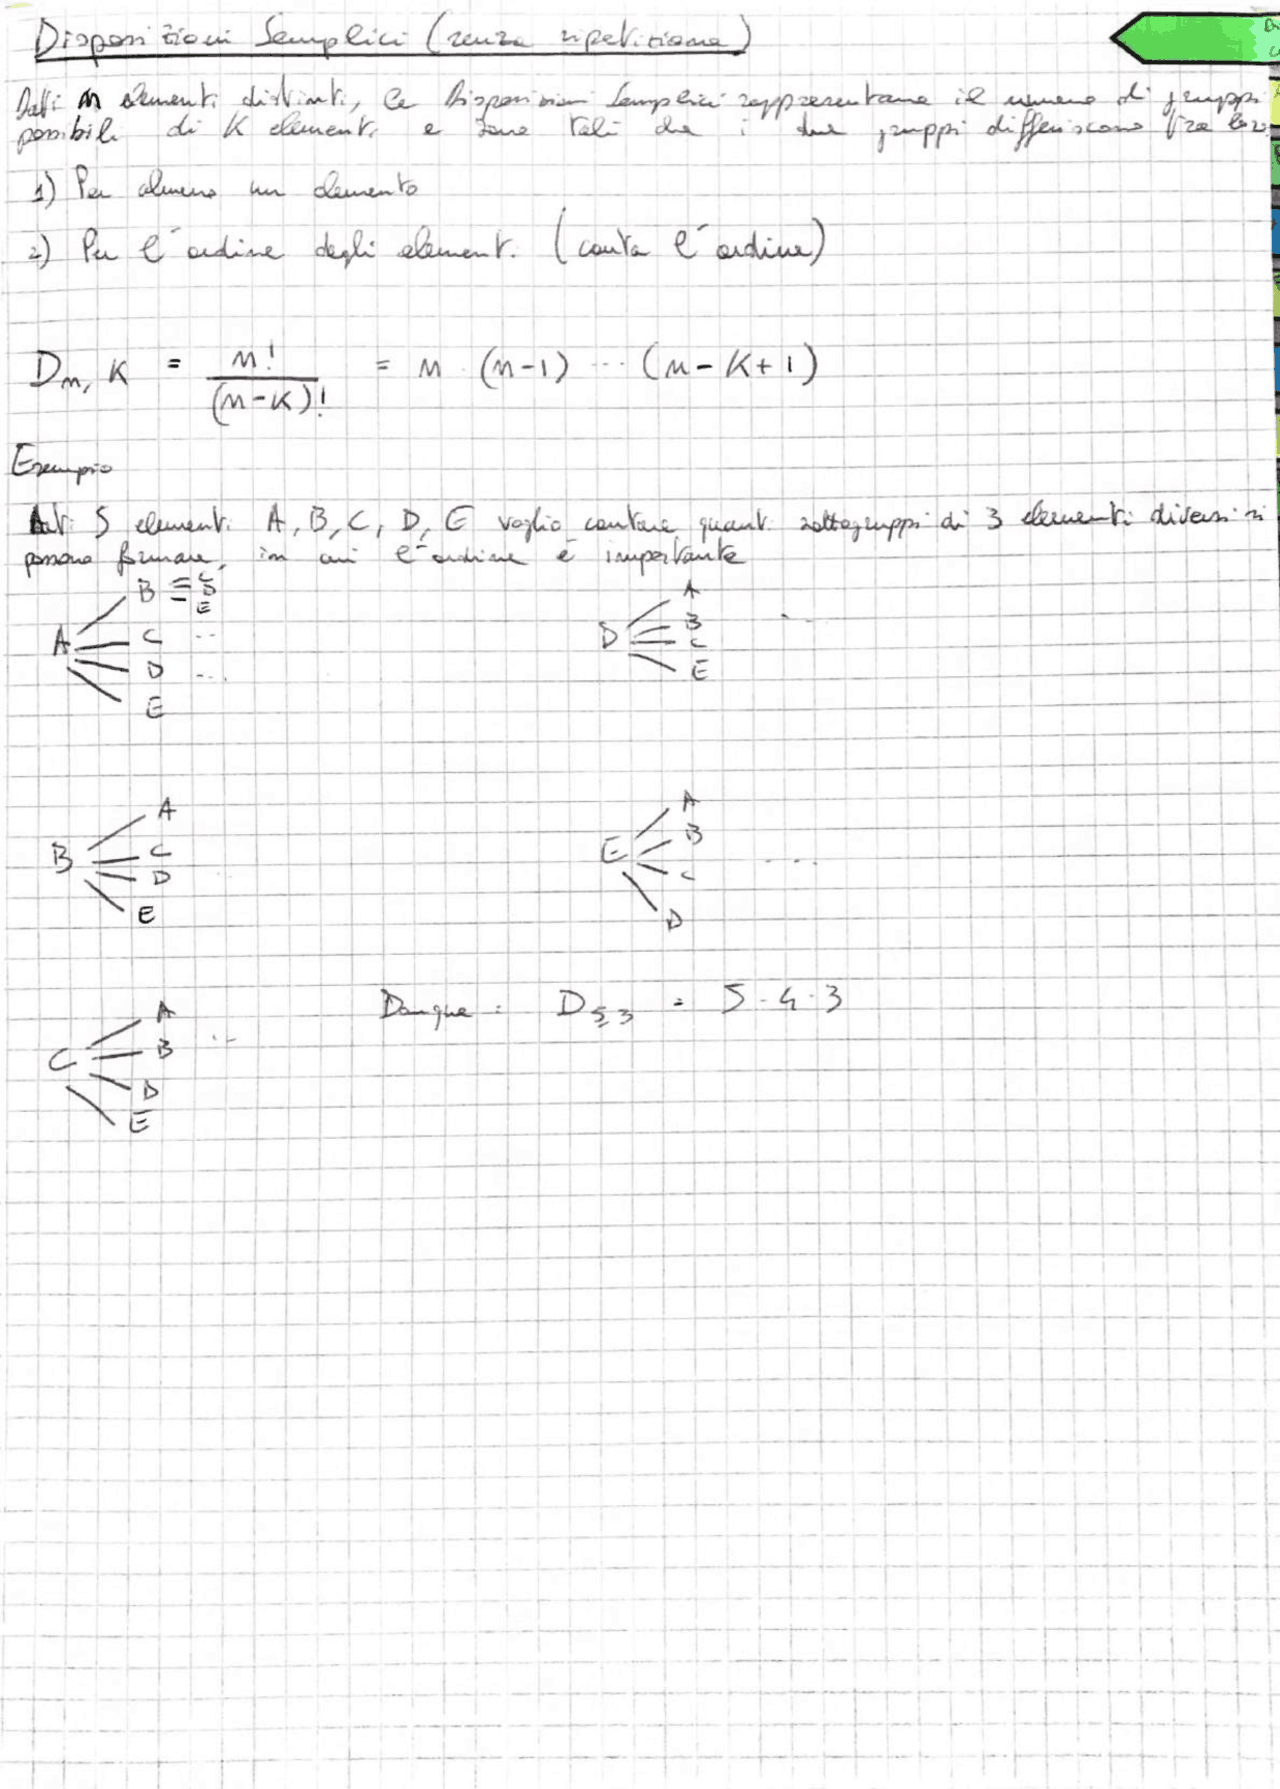 Disposizioni Semplici (senza ripetizione)
Dati n elementi distinti, le Disposizioni Semplici rappresentano il numero di gruppi
possibili di K elementi e sono tali che i due gruppi differiscono fra loro
1) Per almeno un elemento
2) Per l'ordine degli elementi (conta l'ordine)
Dn, K = n! / (n-K)! = n · (n-1) ... (n-K+1)
Esempio
Dati 5 elementi A, B, C, D, E voglio contare quanti sottogruppi di 3 elementi diversi si
possono formare, in cui l'ordine è importante
A B C D E
C ...
D ...
E
D A B C E ...
B A C D E
E A B C D ...
C A B D E ...
Dunque: D5,3 = 5·4·3